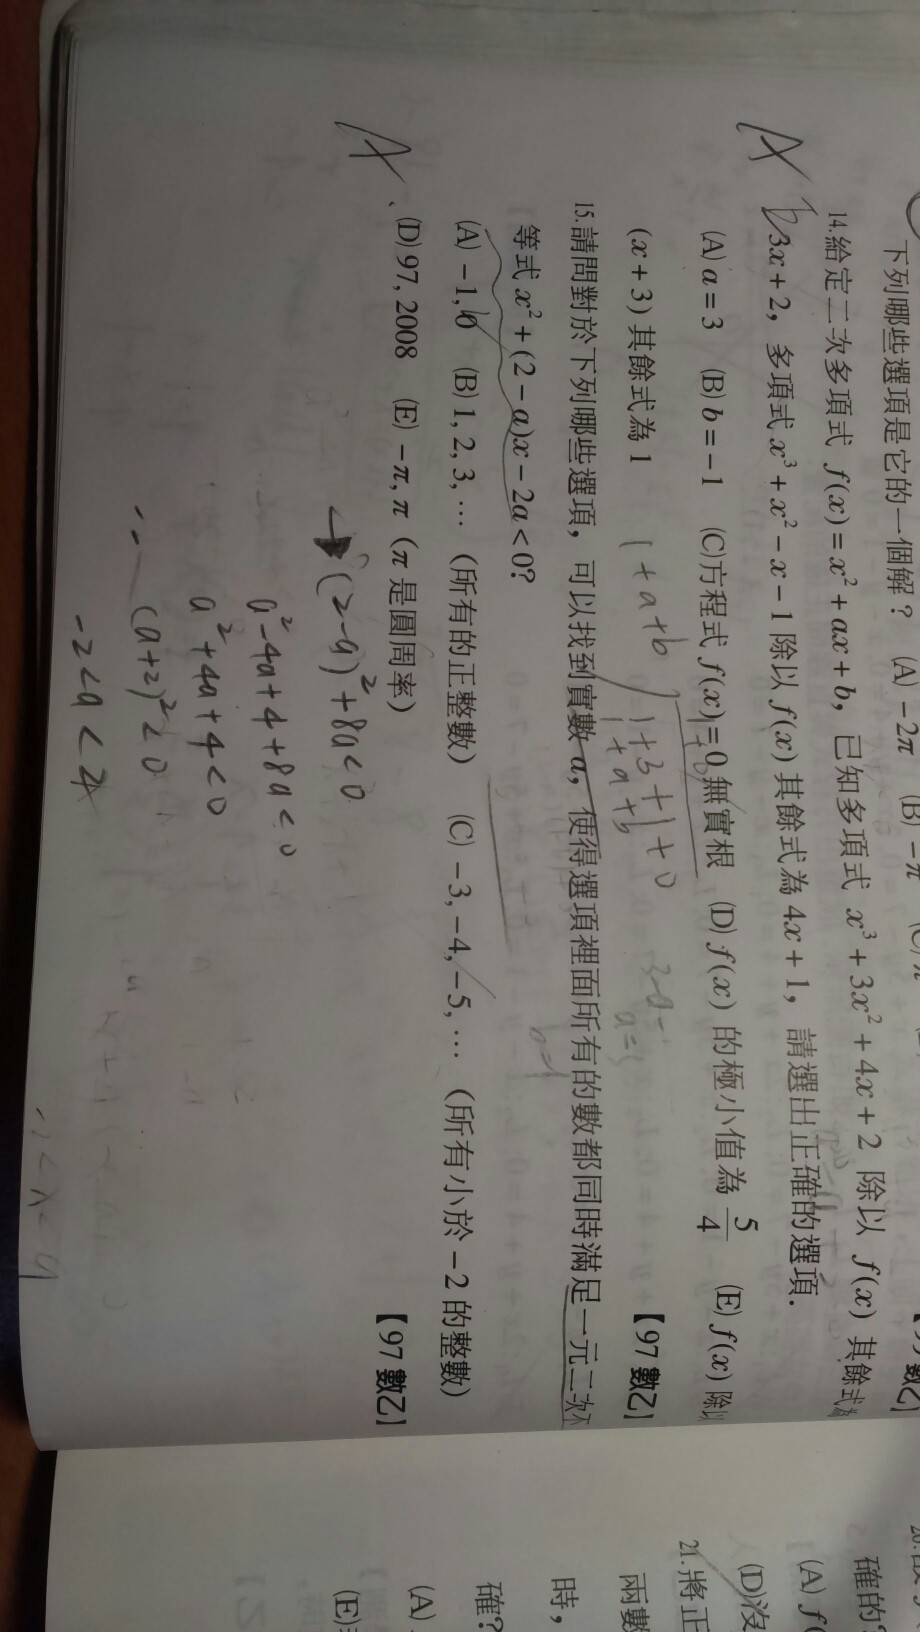 下列哪些選項是它的一個解？ (A) -2π (B) -π
14.給定二次多項式 f(x)=x²+ax+b，已知多項式 x³+3x²+4x+2 除以 f(x) 其餘式
3x+2，多項式 x³+x²-x-1 除以 f(x) 其餘式為 4x+1，請選出正確的選項.
(A) a=3 (B) b=-1 (C)方程式 f(x)=0 無實根 (D) f(x) 的極小值為 5/4 (E) f(x) 除以
(x+3) 其餘式為 1 【97 數乙】
1+a+b
1+3+1+0
1+a+b
15.請問對於下列哪些選項，可以找到實數 a，使得選項裡面所有的數都同時滿足一元二次不
等式 x²+(2-a)x-2a<0?
(A) -1, 0 (B) 1, 2, 3, … (所有的正整數) (C) -3, -4, -5, … (所有小於 -2 的整數)
(D) 97, 2008 (E) -π, π (π 是圓周率) 【97 數乙】
→ (2-a)²+8a<0
a²-4a+4+8a<0
a²+4a+4<0
(a+2)²<0
-2<a<
確的?
(A) f(
(D)沒
21.將正
兩數
時，
確?
(A)
(E)